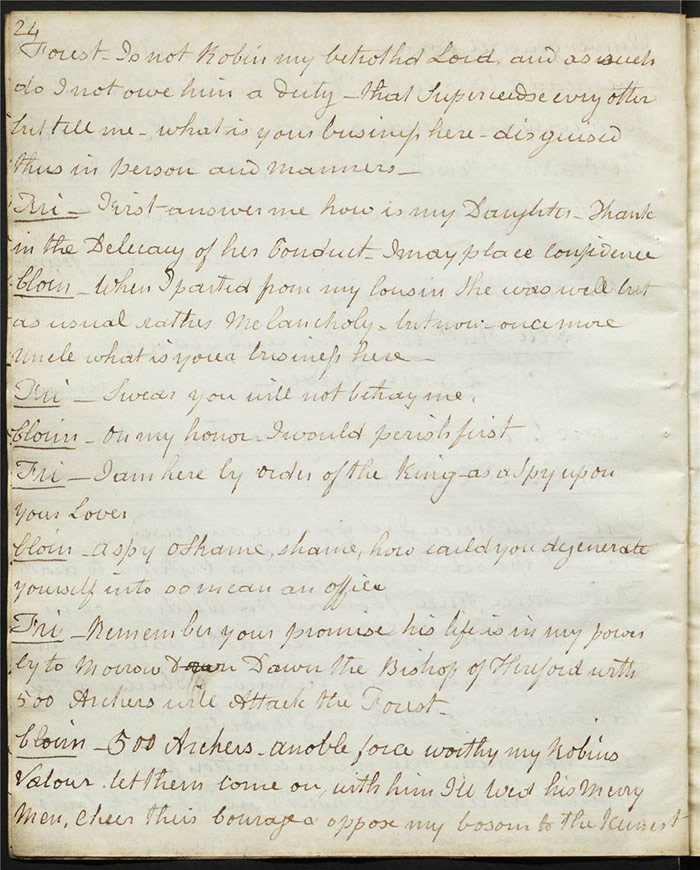 24
Forest - Is not Robin my betrothd Lord, and as such
do I not owe him a duty - that Superceedse every other
but tell me - what is your business here - disguised
thus in person and manners -
Fri - First answer me how is my Daughter - Thank
in the Delecacy of her Conduct - I may place confidence
Clorin - When I parted from my Cousin She was well but
as usual rather Melancholy - but now - once more
Uncle what is your business here -
Fri - Swear you will not betray me.
Clorin - On my honor I would perish first
Fri - I am here by order of the King - as a Spy upon
your Lover
Clorin - a spy o Shame, shame, how could you degenerate
yourself into so mean an office
Fri - Remember your promise his life is in my power
by to Morrow Dawn the Bishop of Hereford with
500 Archers will Attack the Forest -
Clorin - 500 Archers - a noble force worthy my Robins
Valour. let them come on, with him I'll lead his Merry
Men, Cheer their Courage & oppose my bosom to the Keenest